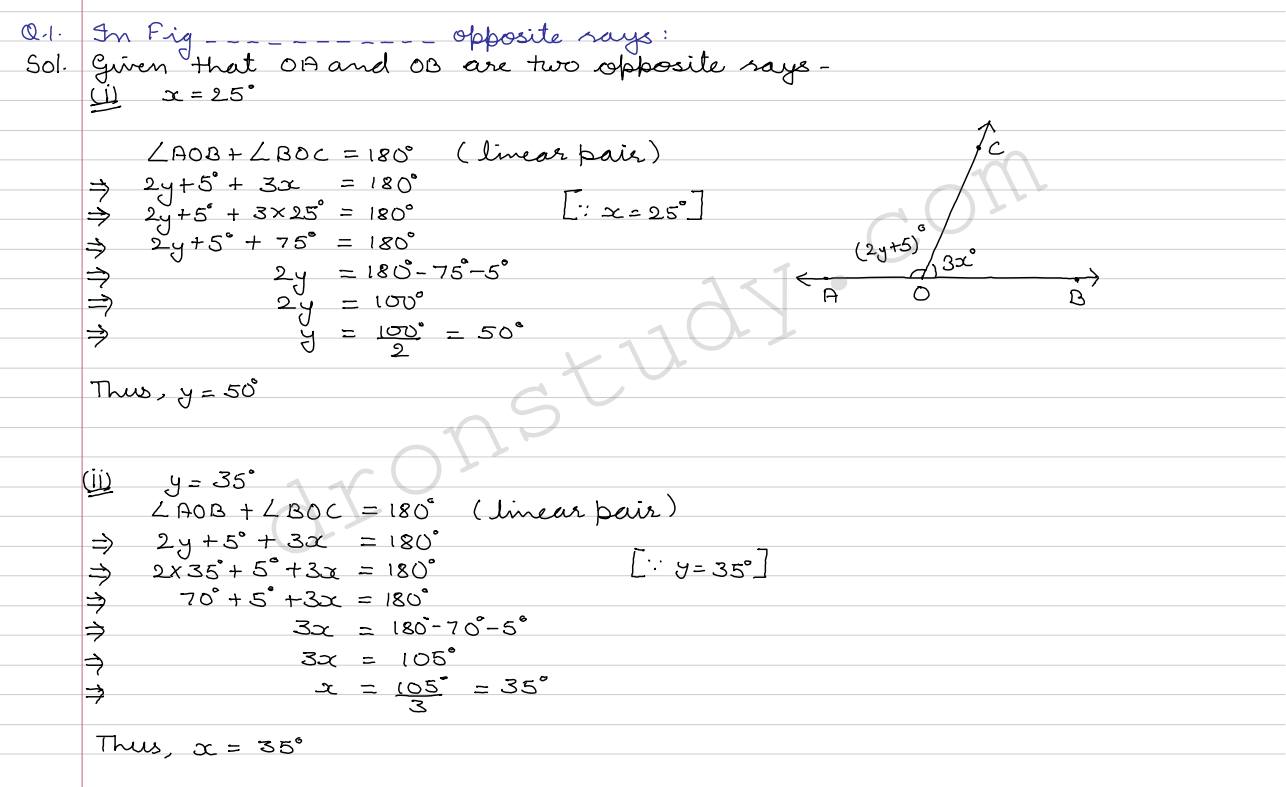 Q.1. In Fig _ _ _ _ _ _ _ _ _ _ _ opposite rays:
Sol. Given that OA and OB are two opposite rays -
(i) x = 25°
∠AOB + ∠BOC = 180° (linear pair)
⇒ 2y+5° + 3x = 180°
⇒ 2y+5° + 3×25° = 180° [∵ x = 25°]
⇒ 2y+5° + 75° = 180°
⇒ 2y = 180°-75°-5°
⇒ 2y = 100°
⇒ y = 100°/2 = 50°
Thus, y = 50°
C
(2y+5)°
3x°
A O B
(ii) y = 35°
∠AOB + ∠BOC = 180° (linear pair)
⇒ 2y+5° + 3x = 180°
⇒ 2×35°+5°+3x = 180° [∵ y = 35°]
⇒ 70°+5°+3x = 180°
⇒ 3x = 180°-70°-5°
⇒ 3x = 105°
⇒ x = 105°/3 = 35°
Thus, x = 35°
dronstudy.com